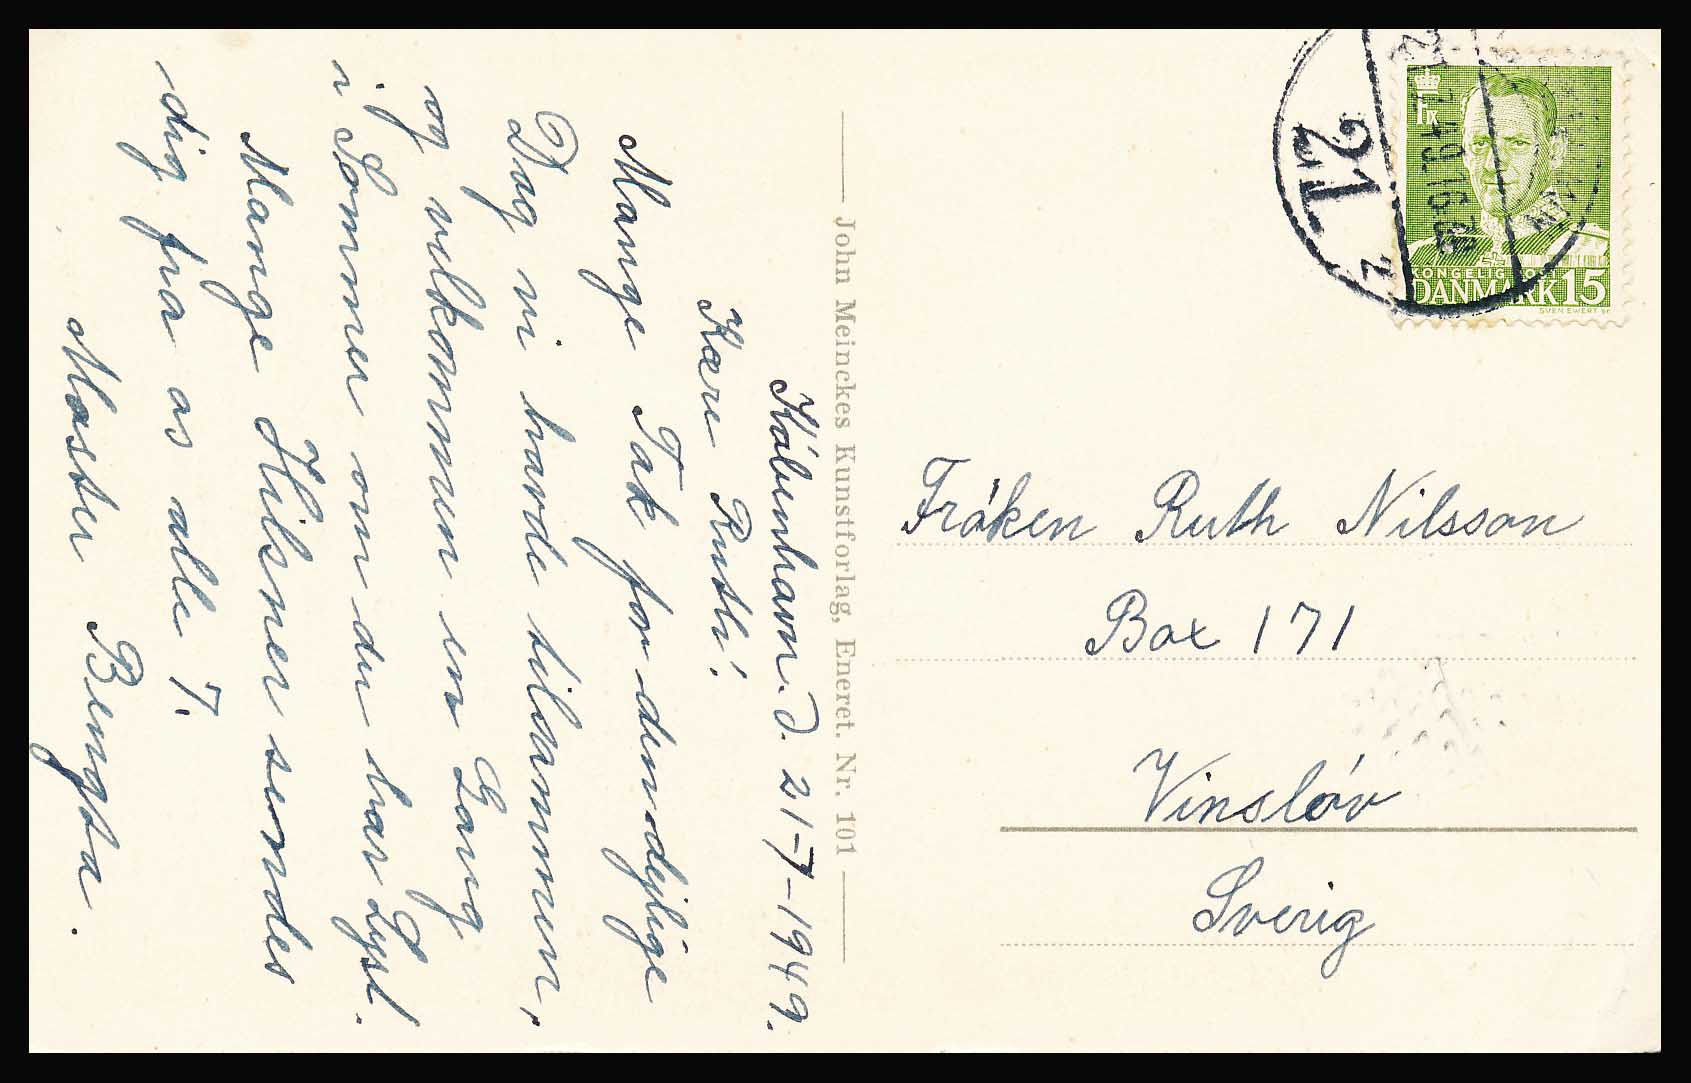 Köbenhavn. d. 21-7-1949.
Kære Ruth!
Mange Tak for den dejlige
Dag vi havde tilsammen,
og velkommen en Gang
i Sommer om du har Lyst.
Mange Hilsner sendes
dig fra os alle 7.
Moster Bengta.
John Meinckes Kunstforlag, Eneret. Nr. 101
21
7.49.16
FIX
KONGELIG POST
DANMARK 15
SVEN EWERT gr.
Fröken Ruth Nilsson
Box 171
Vinslöv
Sverig